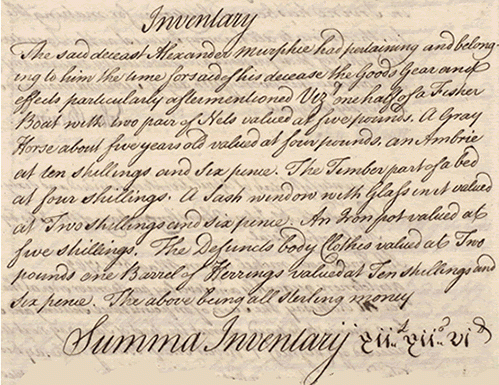 Inventary
The said deceast Alexander Murphie had pertaining and belong
ing to him the time forsaid of his decease the Goods Gear and
effects particularly aftermentioned Vizt one half of a Fisher
Boat with two pair of Nets valued at five pounds. A Gray
Horse about five years old valued at four pounds, an Ambrie
at ten shillings and six pence. The Timber part of a bed
at four shillings. A Sash window with Glass in it valued
at Two shillings and six pence. An Iron pot valued at
five shillings. The Defuncts body Clothes valued at Two
pounds one Barrel of Herrings valued at Ten shillings and
six pence. The above being all sterling money
Summa Inventarij xii..£ xii..s vi d